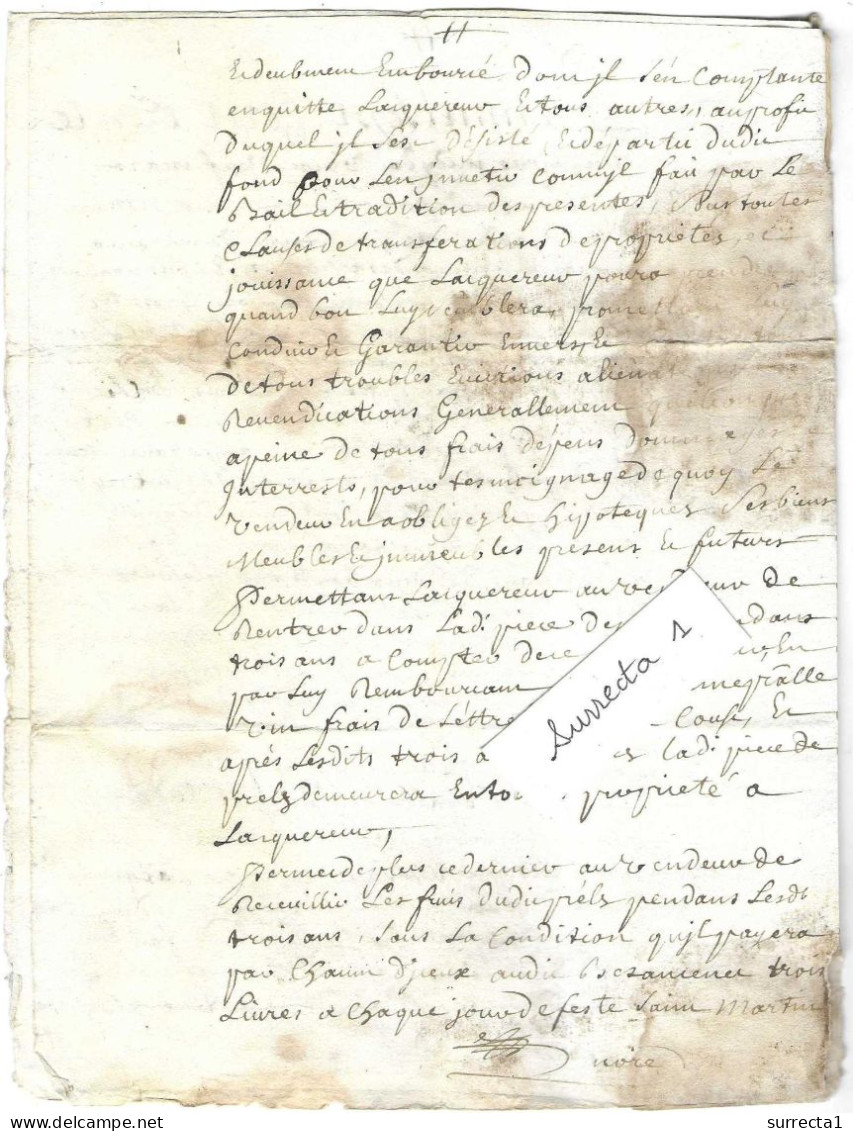 Et deubment Embourcé dont jl s'en Comptante
enquitte Lacquereur Et tous autres, auprofit
duquel jl s'est désisté Et départit dudit
fond pour s'en jnvetir Comme jl fait par Le
Bail Et tradition des presentes, Sous toutes
Clauses de transferations de proprietes et
jouissance que Lacquereur poura prendre
quand bon Luy semblera, promettant
Conduire Et Garantir Envers, Et
de tous troubles Evictions alienations
Revendications Generallement quelconques
apeine de tous frais dépens dommages
Interrests, pour tesmoignage de quoy Le
vendeur En a obligez Et hipoteques Ses biens
Meubles Et jmmeubles presens Et futurs
Permettant Lacquereur au vendeur de
Rentrer dans Ladt piece de dans
trois ans a Compter de ce En
par Luy Remboursant
vin frais de Léttre Cause, Et
aprés Lesdits trois a Ladt piece de
prelz demeurera En to proprieté a
Lacquereur,
Permet de plus ce dernier au vendeur de
Receuillir Les fruis dudit prélz pendans Lesdt
trois ans, Sous La Condition qu'jl payera
par Chacun d'jceux audit trois
Livres a Chaque jour de feste Saint Martin
nōre
Surrecta 1
surrecta1